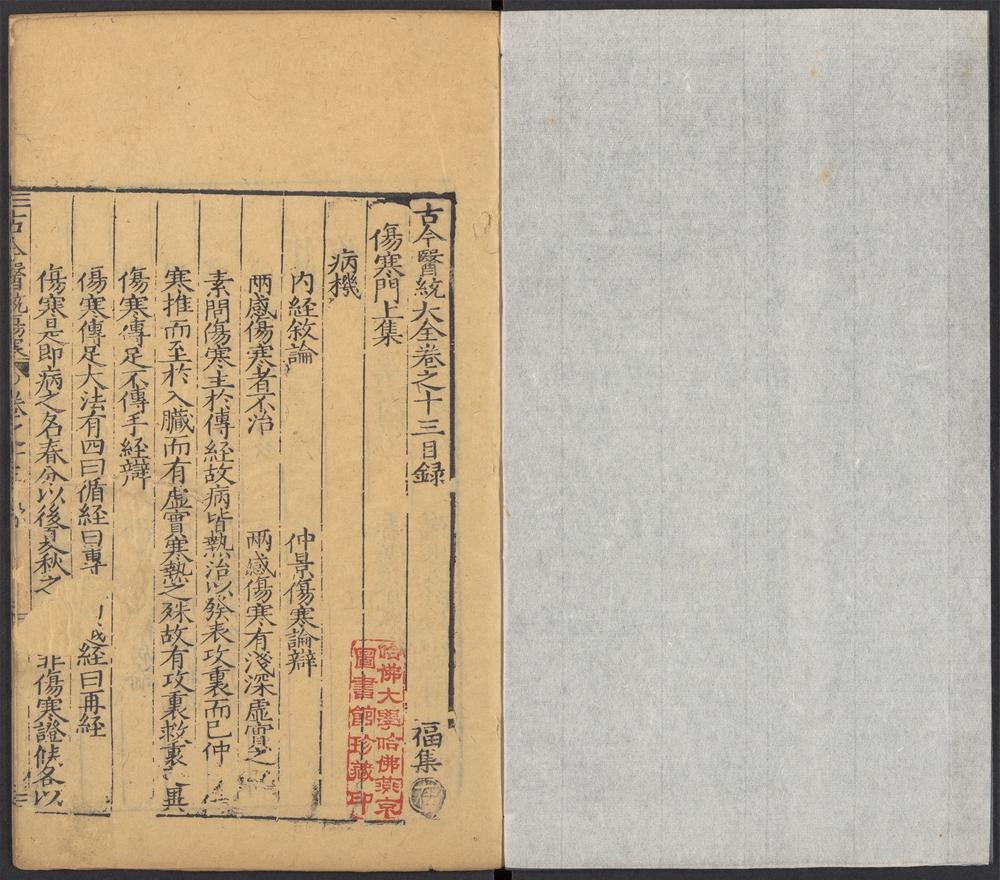 古今醫統大全卷之十三目録 福集
傷寒門上集
病機
内經敘論 仲景傷寒論辯
兩感傷寒者不治 兩感傷寒有淺深虛實之
素問傷寒主於傳經故病皆熱治以發表攻裏而已仲
寒推而至於入臟而有虛實寒熱之殊故有攻裏救裏 異
傷寒傳足不傳手經辯
傷寒傳足大法有四曰循經曰專 經曰再經
傷寒是即病之名春分以後至秋之 非傷寒證候各以
古今醫統傷寒 卷之十三
哈佛大學哈佛燕京
圖書館珍藏印